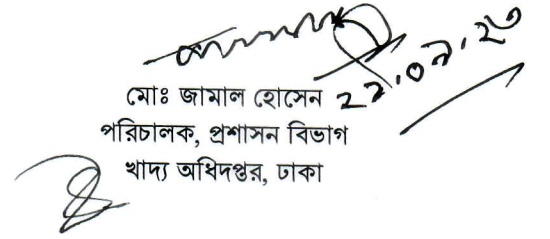 ২২.০৯.২৩
মোঃ জামাল হোসেন
পরিচালক, প্রশাসন বিভাগ
খাদ্য অধিদপ্তর, ঢাকা